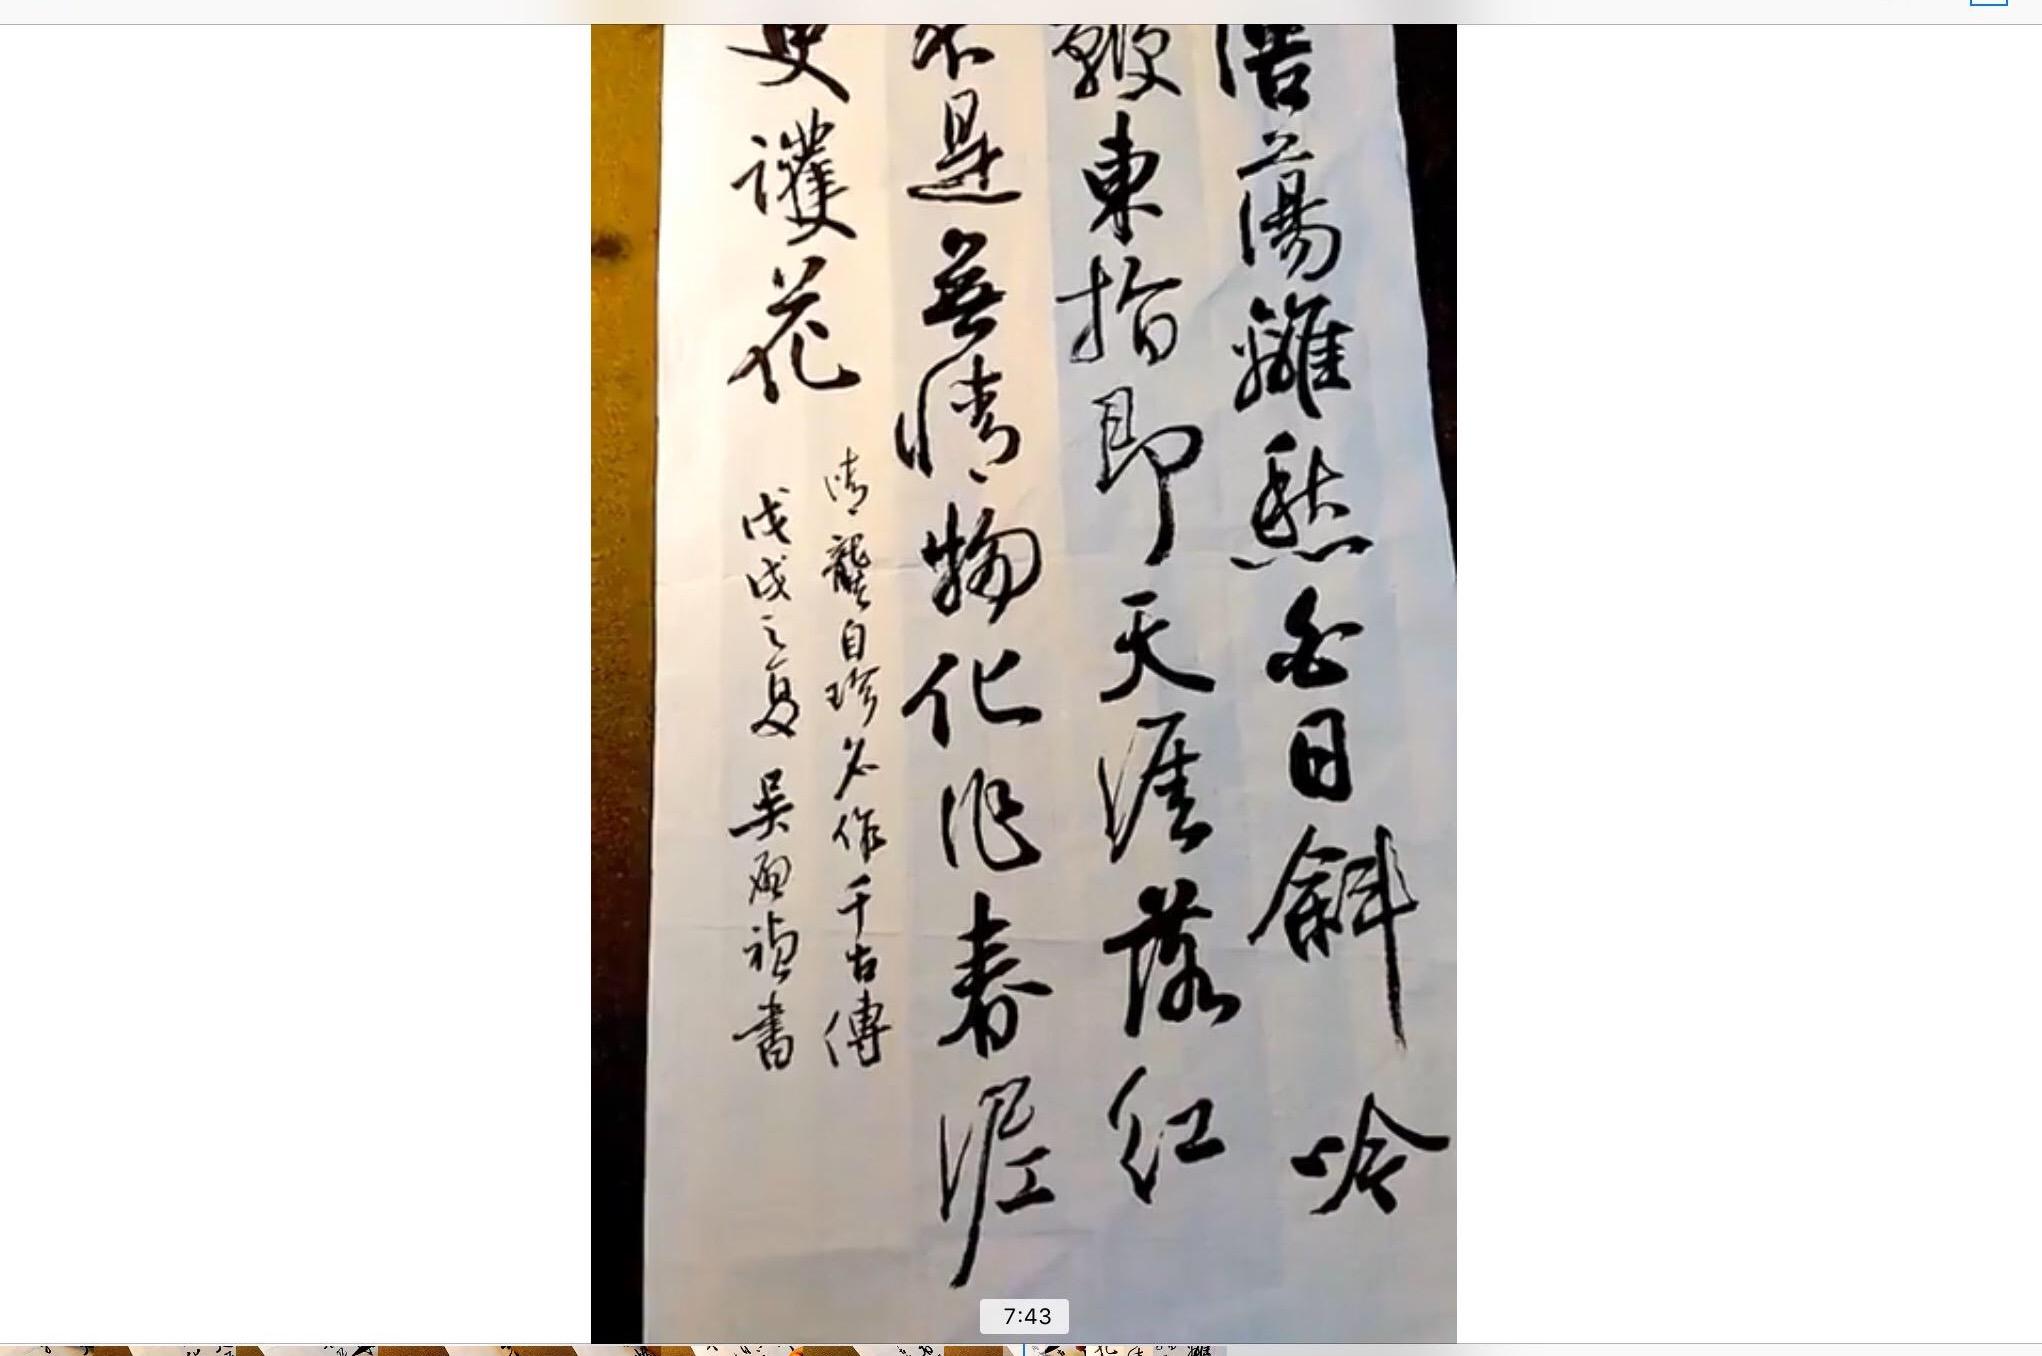 浩蕩離愁白日斜吟
鞭東指即天涯落紅
不是無情物化作春泥
更護花
清龔自珍名作千古傳
戊戌之夏 吳禎書
7:43